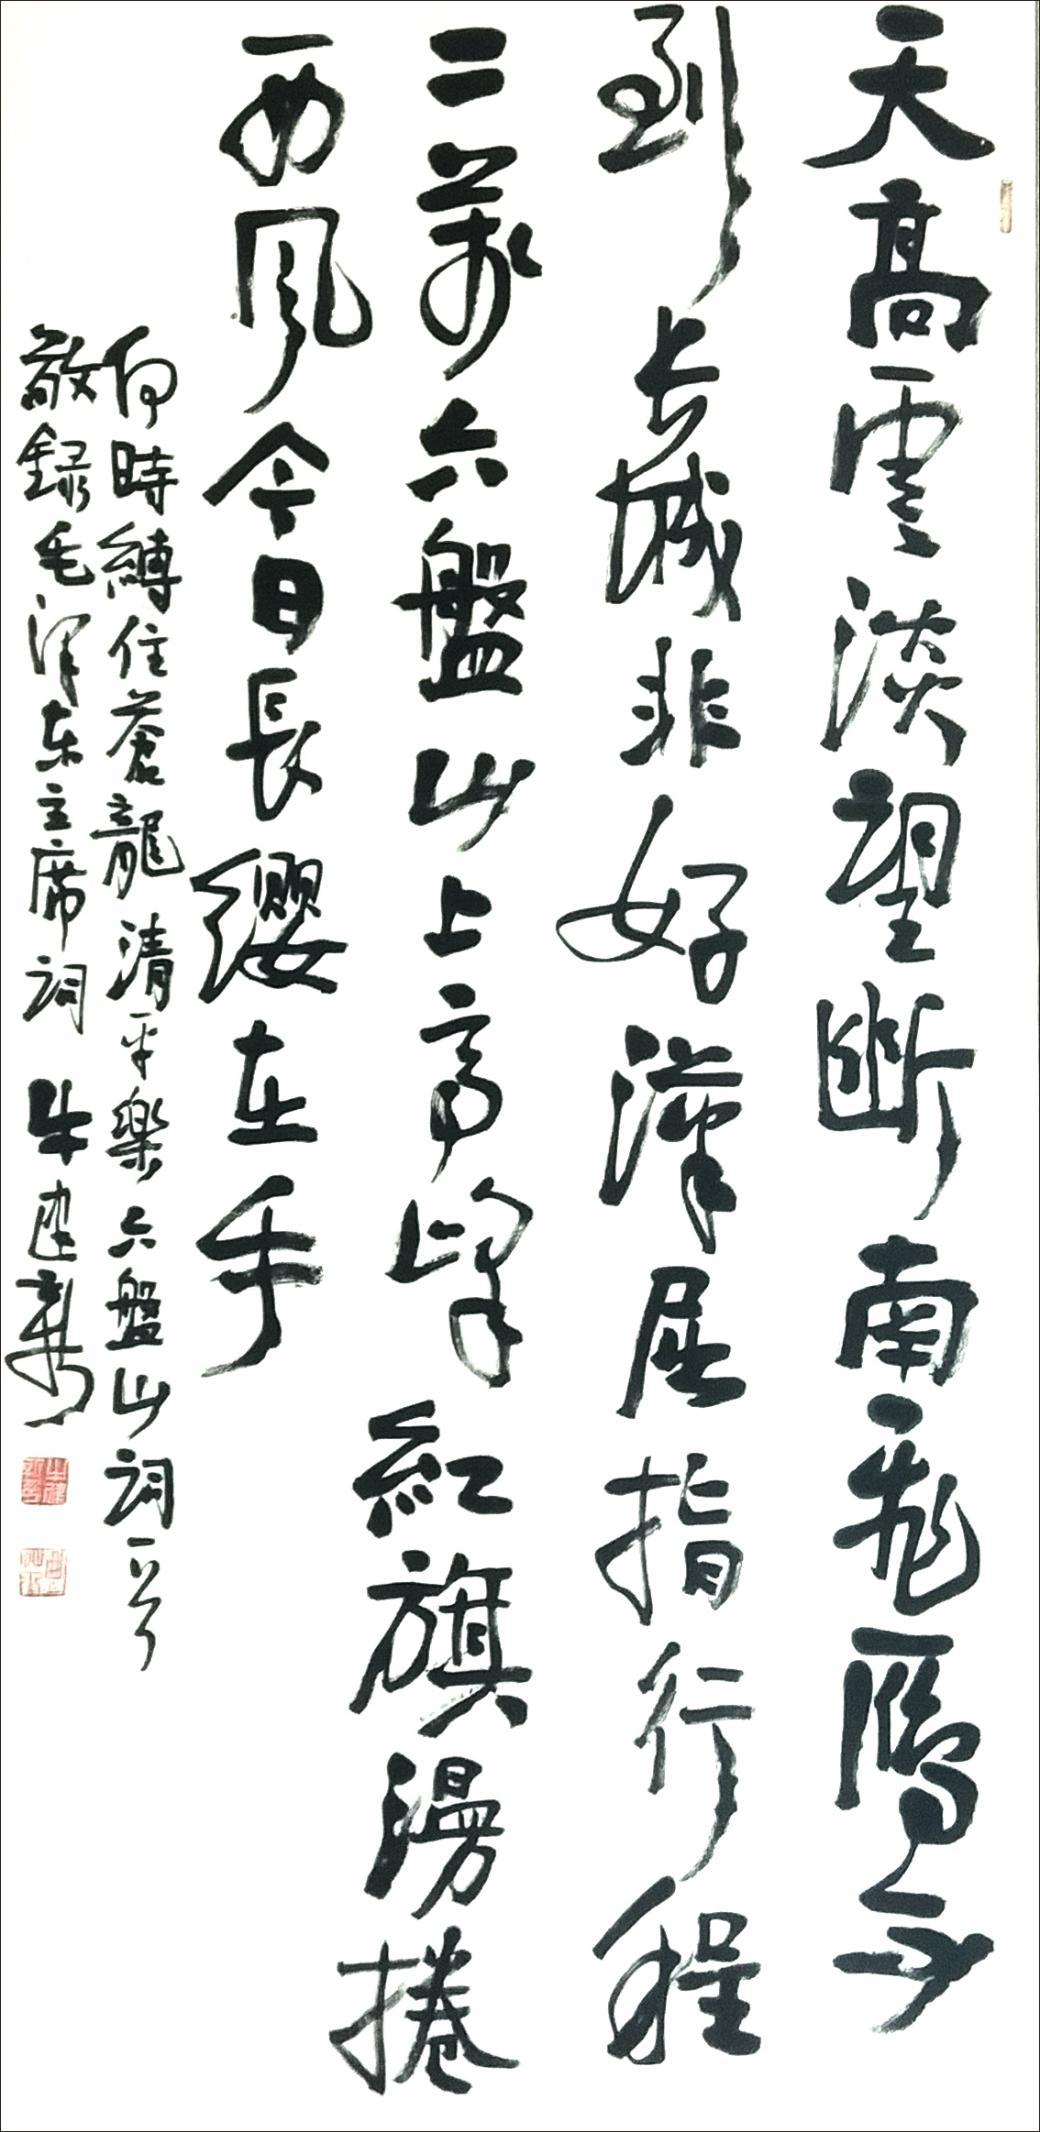 天高雲淡望斷南飛雁不
到長城非好漢屈指行程
二萬六盤山上高峰紅旗漫捲
西風今日長纓在手
何時縛住蒼龍清平樂六盤山詞一首
敬録毛澤东主席词牛建